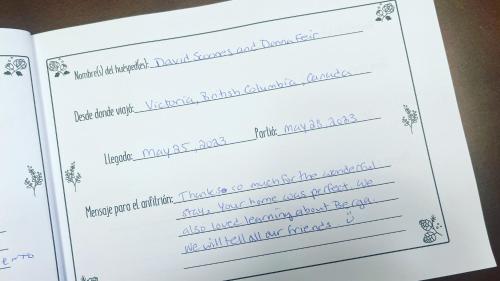 Nombre(s) del huésped(es): David Soanes and Donna Feir
Desde donde viajó: Victoria, British Columbia, Canada
Llegada: May 25, 2023 Partió: May 28, 2023
Mensaje para el anfitrión: Thanks so much for the wonderful
stay. Your home was perfect. We
also loved learning about Berga.
We will tell all our friends
ENTO